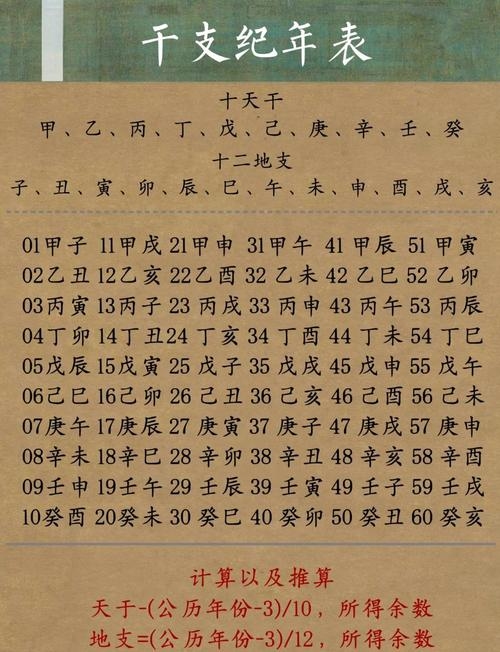 干支纪年表
十天干
甲、乙、丙、丁、戊、己、庚、辛、壬、癸
十二地支
子、丑、寅、卯、辰、巳、午、未、申、酉、戌、亥
01甲子 11甲戌 21甲申 31甲午 41 甲辰 51 甲寅
02乙丑 12乙亥 22乙酉 32 乙未 42 乙巳 52 乙卯
03丙寅 13丙子 23 丙戌 33 丙申 43 丙午 53 丙辰
04丁卯 14丁丑24 丁亥 34 丁酉 44 丁未 54 丁巳
05戊辰 15戊寅 25 戊子 35 戊戌 45 戊申 55 戊午
06己巳 16己卯 26 己丑 36 己亥 46 己酉 56 己未
07庚午 17庚辰 27 庚寅 37 庚子 47 庚戌 57 庚申
08辛未 18辛巳 28 辛卯 38 辛丑 48 辛亥 58 辛酉
09壬申 19壬午 29 壬辰 39 壬寅 49 壬子 59 壬戌
10癸酉 20癸未 30 癸巳 40 癸卯 50 癸丑 60 癸亥
计算以及推算
天于-(公历年份-3)/10，所得余数
地支=(公历年份-3)/12，所得余数